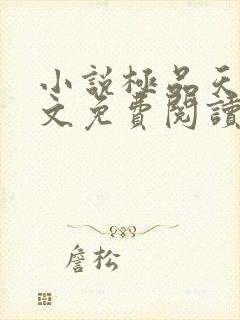 小說極品天
文免費閱讀
詹松